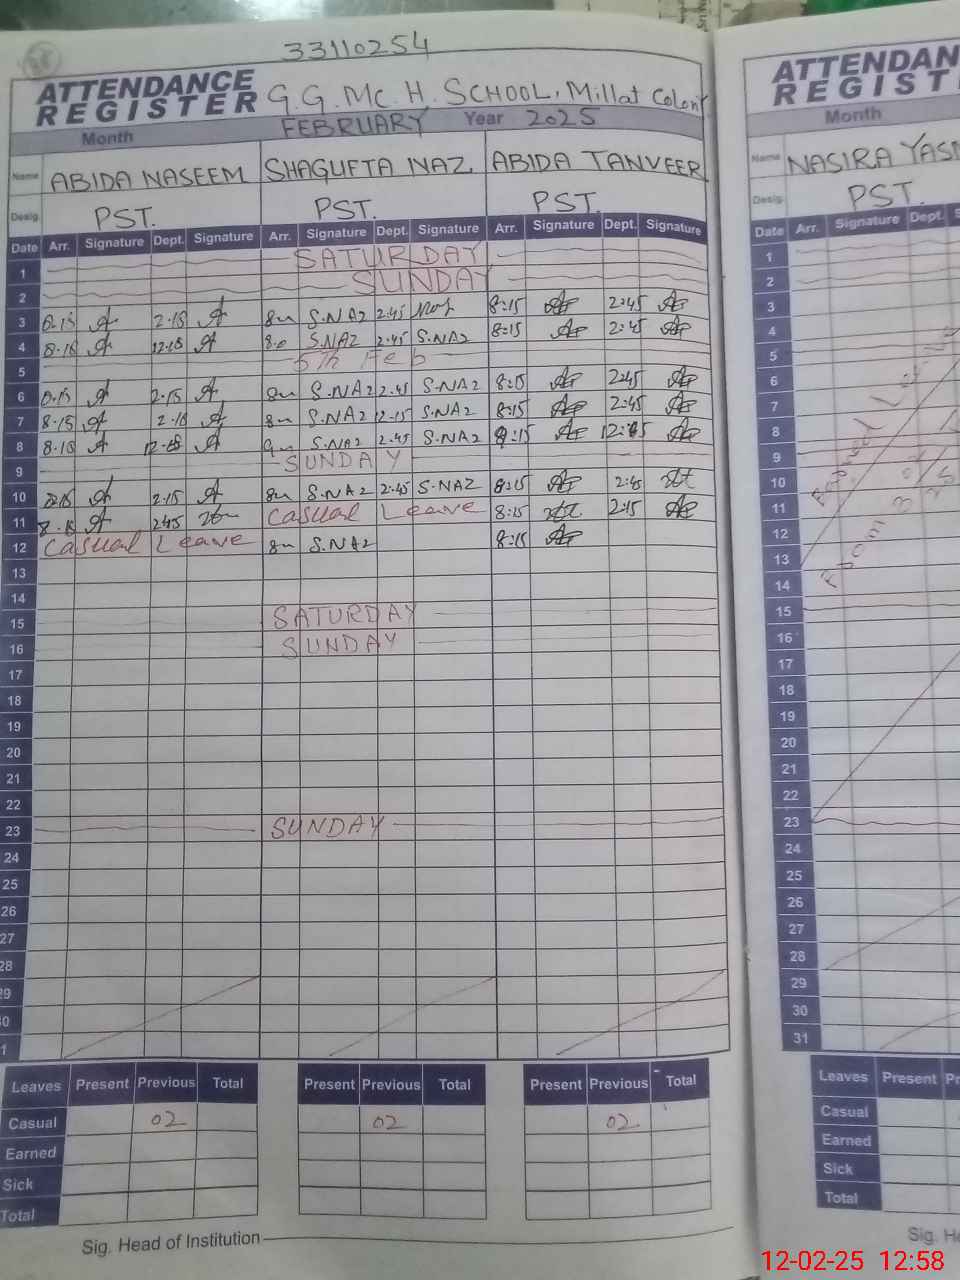 33110254
ATTENDANCE REGISTER G.G.Mc.H. SCHOOL, Millat Colony
Month FEBRUARY Year 2025
Name ABIDA NASEEM SHAGUFTA NAZ. ABIDA TANVEER
Desig. PST. PST. PST.
Date Arr. Signature Dept. Signature Arr. Signature Dept. Signature Arr. Signature Dept. Signature
1 SATURDAY
2 SUNDAY
3 8.15 2.15 S.NAZ 2.45 8:15 2:45
4 8.15 12.15 8.0 S.NAZ 2.45 S.NAZ 8:15 2:45
5 5th Feb
6 8.15 2.15 S.NAZ 2.45 S.NAZ 8:15 2:45
7 8.15 2.15 S.NAZ 12.15 S.NAZ 8:15 2:45
8 8.15 S.NAZ 2.45 S.NAZ 8:15
9 SUNDAY
10 8.15 2.15 S.NAZ 2.45 S.NAZ 8:15 2:45
11 8.15 2.45 Casual Leave 8:15 2:15
12 Casual Leave S.NAZ 8:15
13
14
15 SATURDAY
16 SUNDAY
17
18
19
20
21
22
23 SUNDAY
24
25
26
27
28
29
30
31
Leaves Present Previous Total Present Previous Total Present Previous Total
Casual 02 02 02
Earned
Sick
Total
Sig. Head of Institution
ATTENDAN
REGIST
Month
Name NASIRA YASM
Desig. PST.
Date Arr. Signature Dept. Sig
1
2
3
4
5
6
7
8
9
10
11
12
13
14
15
16
17
18
19
20
21
22
23
24
25
26
27
28
29
30
31
Leaves Present Pr
Casual
Earned
Sick
Total
Sig. He
12-02-25 12:58